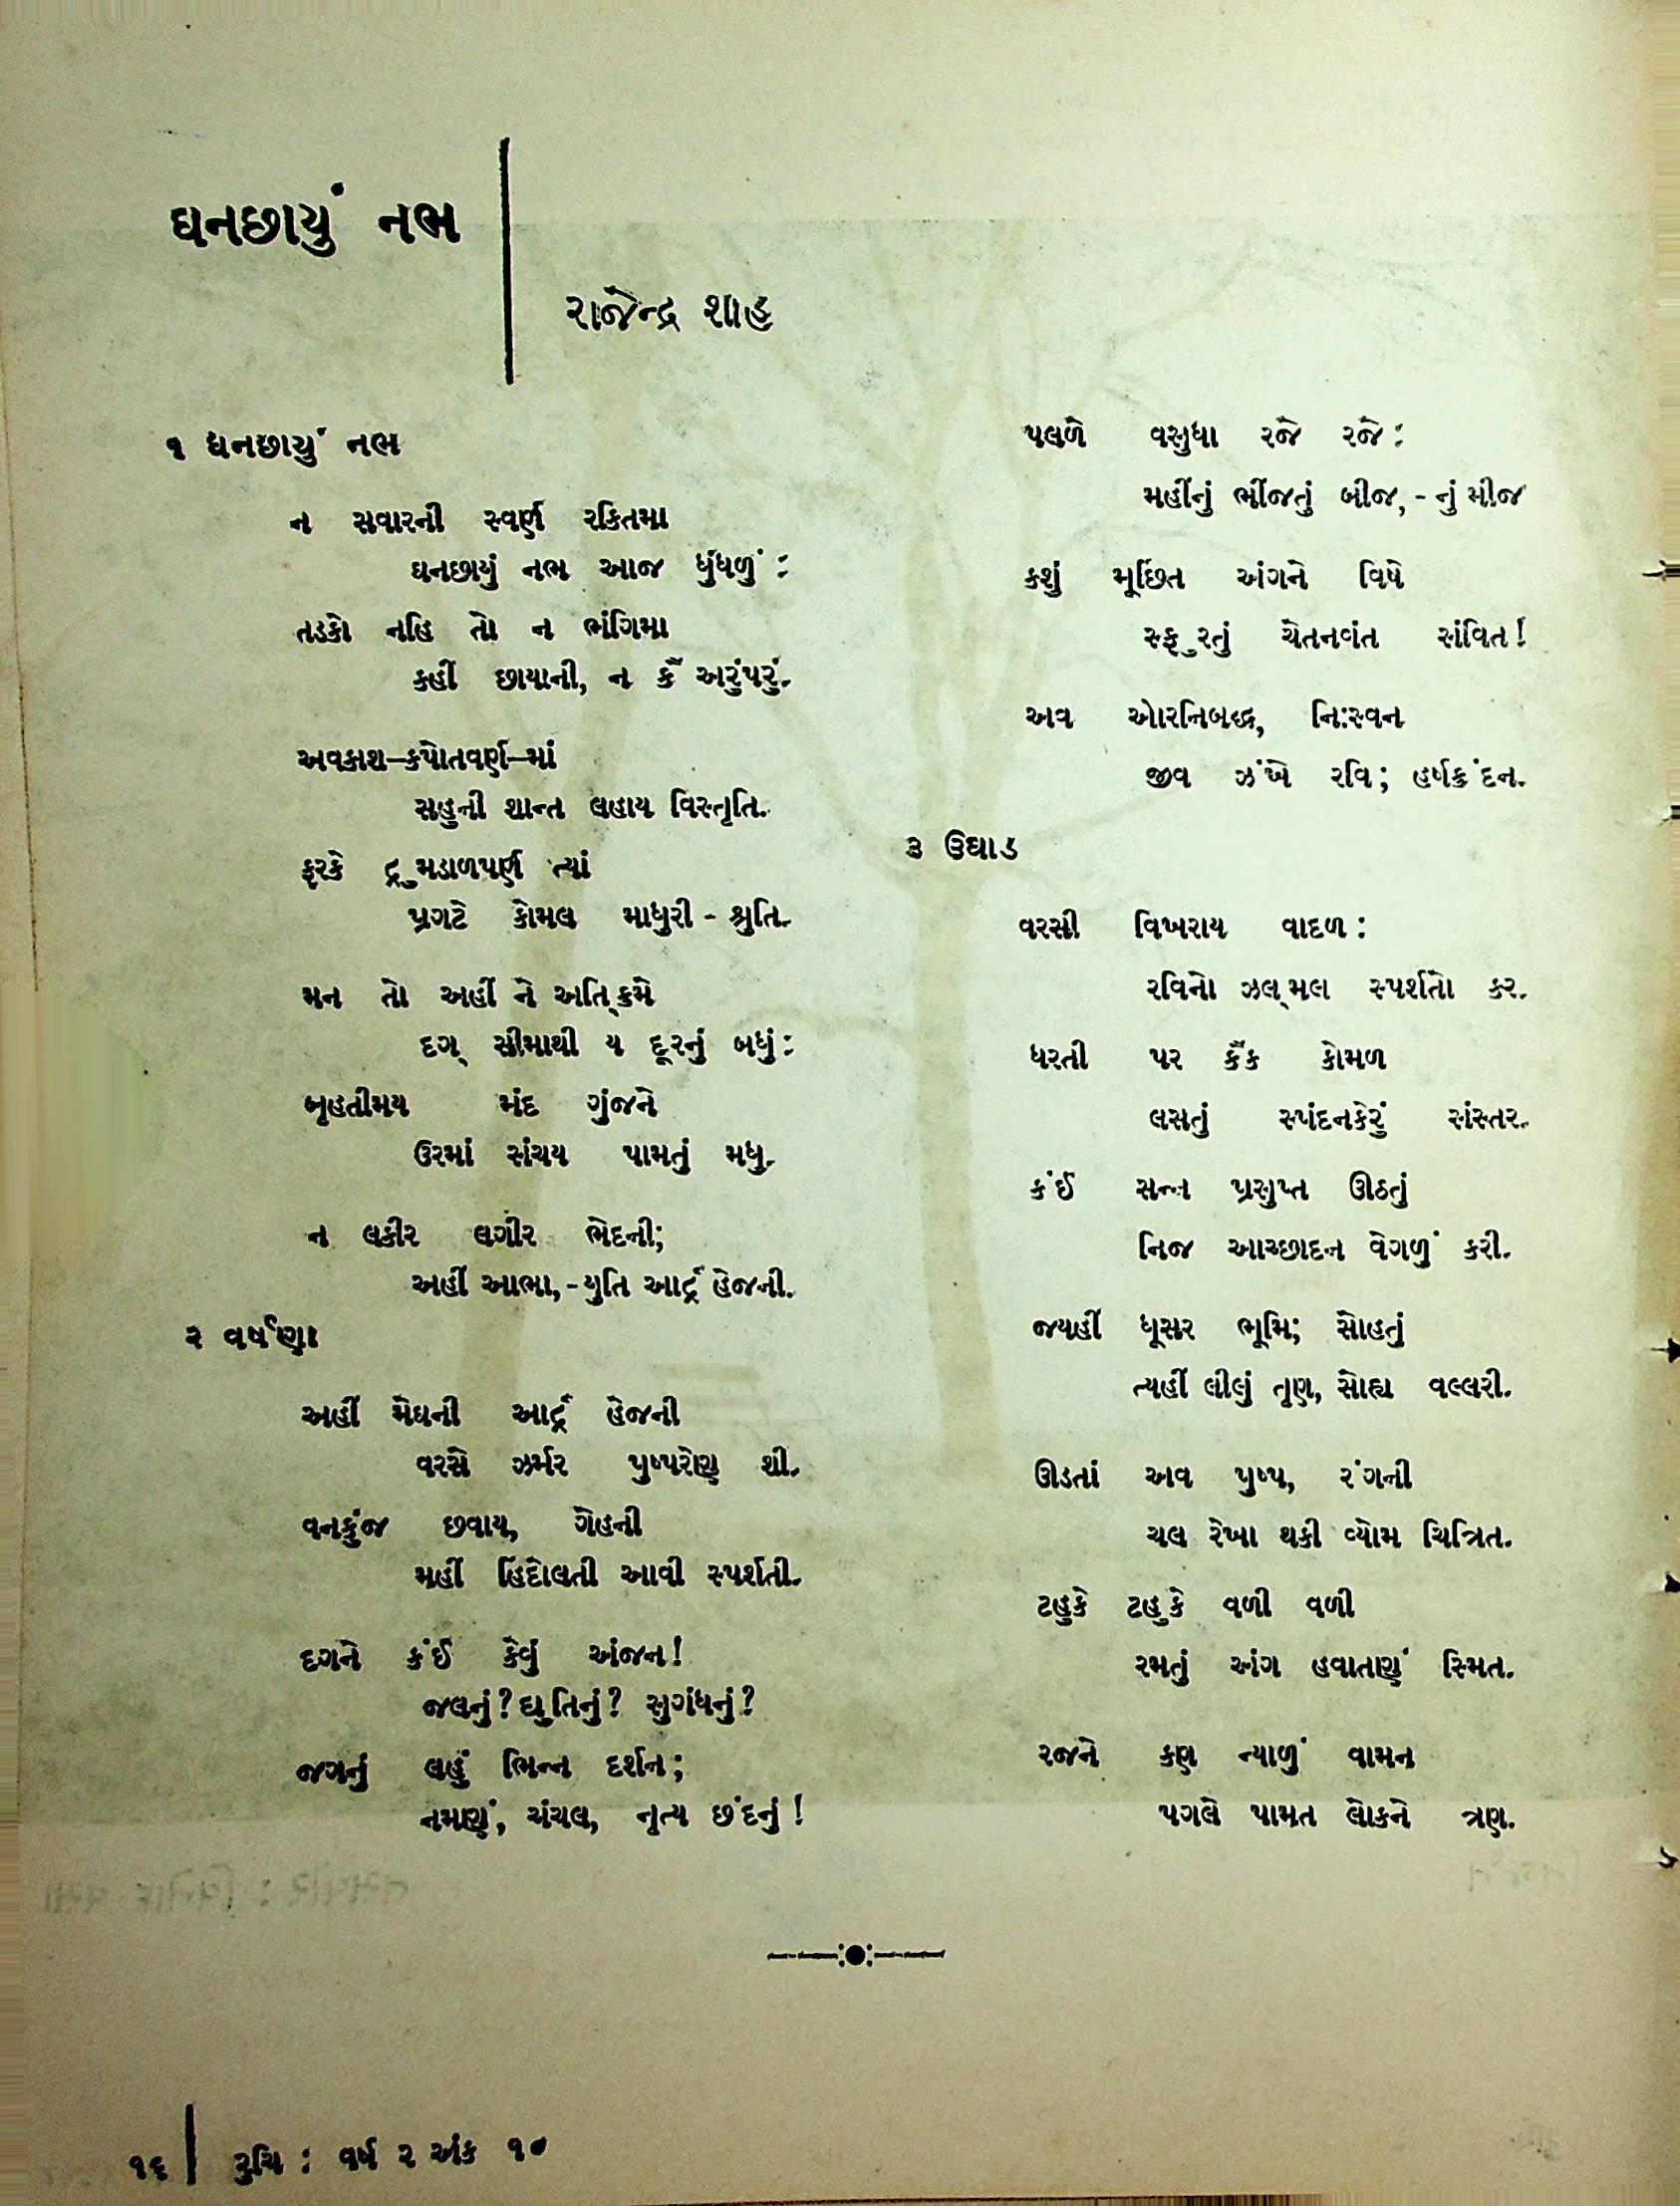 ઘનછાયું નભ
રાજેન્દ્ર શાહ
૧ ઘનછાયું નભ
ન સવારની સ્વર્ણ રક્તિમા
ઘનછાયું નભ આજ ધુંધળું :
તડકો નહિ તો ન ભંગિમા
કહીં છાયાની, ન કૈં અરુંપરું.
અવકાશ–કપોતવર્ણ–માં
સહુની શાન્ત લહાય વિસ્તૃતિ.
ફરકે દ્રુમડાળપર્ણ ત્યાં
પ્રગટે કોમલ માધુરી - શ્રુતિ.
મન તો અહીં ને અતિક્રમે
દગ્ સીમાથી ય દૂરનું બધું :
બૃહતીમય મંદ ગુંજને
ઉરમાં સંચય પામતું મધુ.
ન લકીર લગીર ભેદની;
અહીં આભા, - યુતિ આર્દ્ર હેજની.
૨ વર્ષણા
અહીં મેઘની આર્દ્ર હેજની
વરસે ઝર્મર પુષ્પરેણુ શી.
વનકુંજ છવાય, ગેહની
મહીં હિંદોલતી આવી સ્પર્શતી.
દગને કંઈ કેવું અંજન !
જલનું ? દ્યુતિનું ? સુગંધનું ?
જગનું લહું ભિન્ન દર્શન ;
નમણું, ચંચલ, નૃત્ય છંદનું !
પલળે વસુધા રજે રજે :
મહીંનું ભીંજતું બીજ, - નું મીજ
કશું મૂર્છિત અંગને વિષે
સ્ફુરતું ચેતનવંત સંવિત !
અવ ઓરનિબદ્ધ, નિઃસ્વન
જીવ ઝંખે રવિ ; હર્ષક્રંદન.
૩ ઉઘાડ
વરસી વિખરાય વાદળ :
રવિનો ઝલ્મલ સ્પર્શતો કર.
ધરતી પર કૈંક કોમળ
લસતું સ્પંદનકેરું સંસ્તર.
કંઈ સન્ન પ્રસુપ્ત ઊઠતું
નિજ આચ્છાદન વેગળું કરી.
જયહીં ધૂસર ભૂમિ; સોહતું
ત્યહીં લીલું તૃણ, સોહ્ય વલ્લરી.
ઊડતાં અવ પુષ્પ, રંગની
ચલ રેખા થકી વ્યોમ ચિત્રિત.
ટહુકે ટહુકે વળી વળી
રમતું અંગ હવાતણું સ્મિત.
રજને કણ ન્યાળું વામન
પગલે પામત લોકને ત્રણ.
૧૬ | રુચિ : વર્ષ ૨ અંક ૧૦